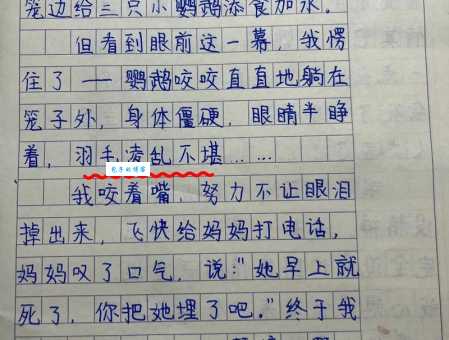 笼边给三只小鹦鹉添食加水。
但看到眼前这一幕,我愣
住了——鹦鹉咬咬直直地躺在
笼子外,身体僵硬,眼睛半睁
着,羽毛凌乱不堪……
我咬着嘴,努力不让眼泪
掉出来,飞快给妈妈打电话,
妈妈叹了口气,说:"她早上就
死了,你把她埋了吧。"终于我